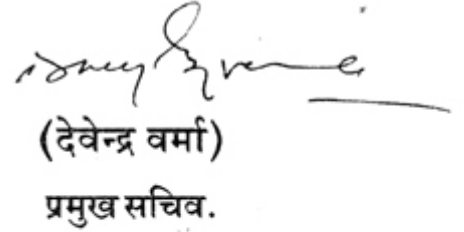 (देवेन्द्र वर्मा)
प्रमुख सचिव.